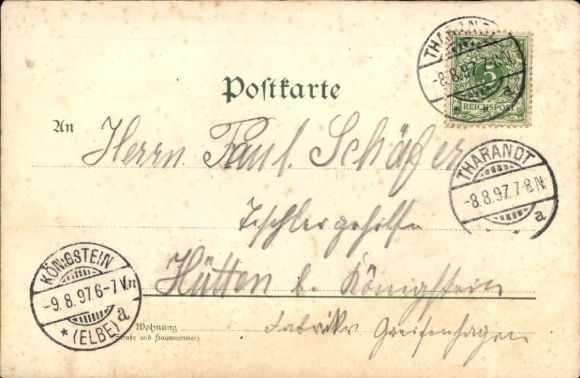 THARANDT
-8.8.97.7-8N.
a
5
REICHSPOST
Postkarte
An
Herrn Paul Schäfer
Tischlergehilfe
THARANDT
-8.8.97.7-8N.
a
in Hütten b. Königstein
KÖNIGSTEIN
-9.8.97.6-7V.
* (ELBE) a
Wohnung
(Straße und Hausnummer)
Fabrik Greifenhagen